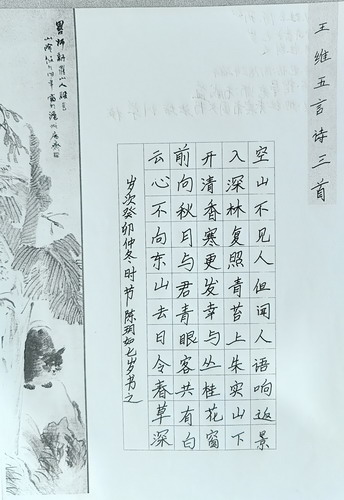 王维五言诗三首
空山不见人但闻人语响返景
入深林复照青苔上朱实山下
开清香寒更发幸与丛桂花窗
前向秋月与君青眼客共有白
云心不向东山去日令春草深
岁次癸卯仲冬时节 陈如七岁书之
新罗山人